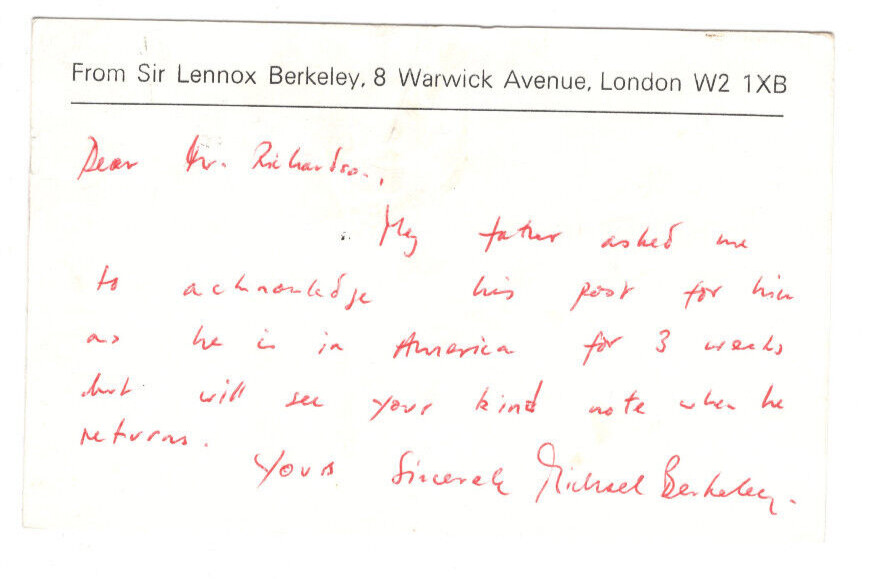 From Sir Lennox Berkeley, 8 Warwick Avenue, London W2 1XB
Dear Mr. Richardson,
My father asked me
to acknowledge his post for him
as he is in America for 3 weeks
but will see your kind note when he
returns.
Yours Sincerely Michael Berkeley.